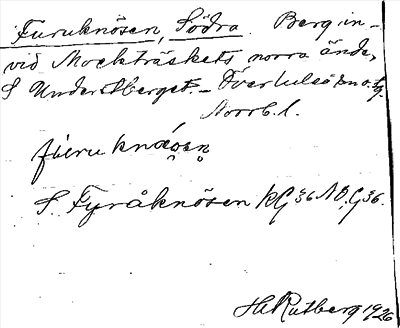 Furuknösen, Södra. Berg in-
vid Mockträskets norra ände,
S Understberget. - Överluleå sn o. tg.
Norrb. l.
fúruknösen
S. Fyråknösen KG 36 NO, G 36.
H. Rutberg 1926